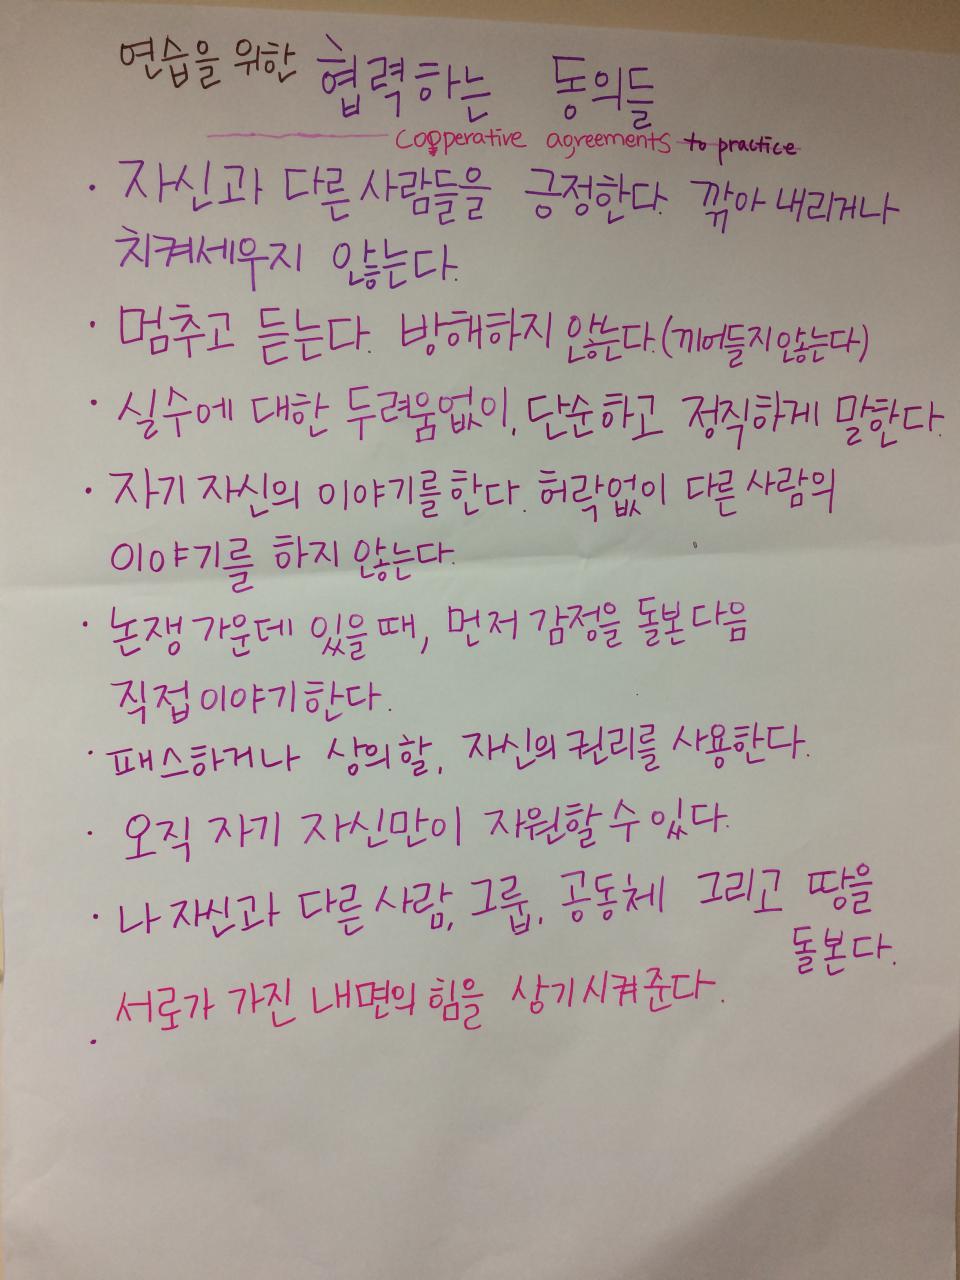 연습을 위한 협력하는 동의들
Cooperative agreements to practice
· 자신과 다른 사람들을 긍정한다. 깎아 내리거나
치켜세우지 않는다.
· 멈추고 듣는다. 방해하지 않는다.(끼어들지 않는다)
· 실수에 대한 두려움없이, 단순하고 정직하게 말한다.
· 자기 자신의 이야기를 한다. 허락없이 다른 사람의
이야기를 하지 않는다.
· 논쟁 가운데 있을 때, 먼저 감정을 돌본다음
직접 이야기한다.
· 패스하거나 상의할, 자신의 권리를 사용한다.
· 오직 자기 자신만이 자원할 수 있다.
· 나 자신과 다른 사람, 그룹, 공동체 그리고 땅을
돌본다.
· 서로가 가진 내면의 힘을 상기시켜 준다.